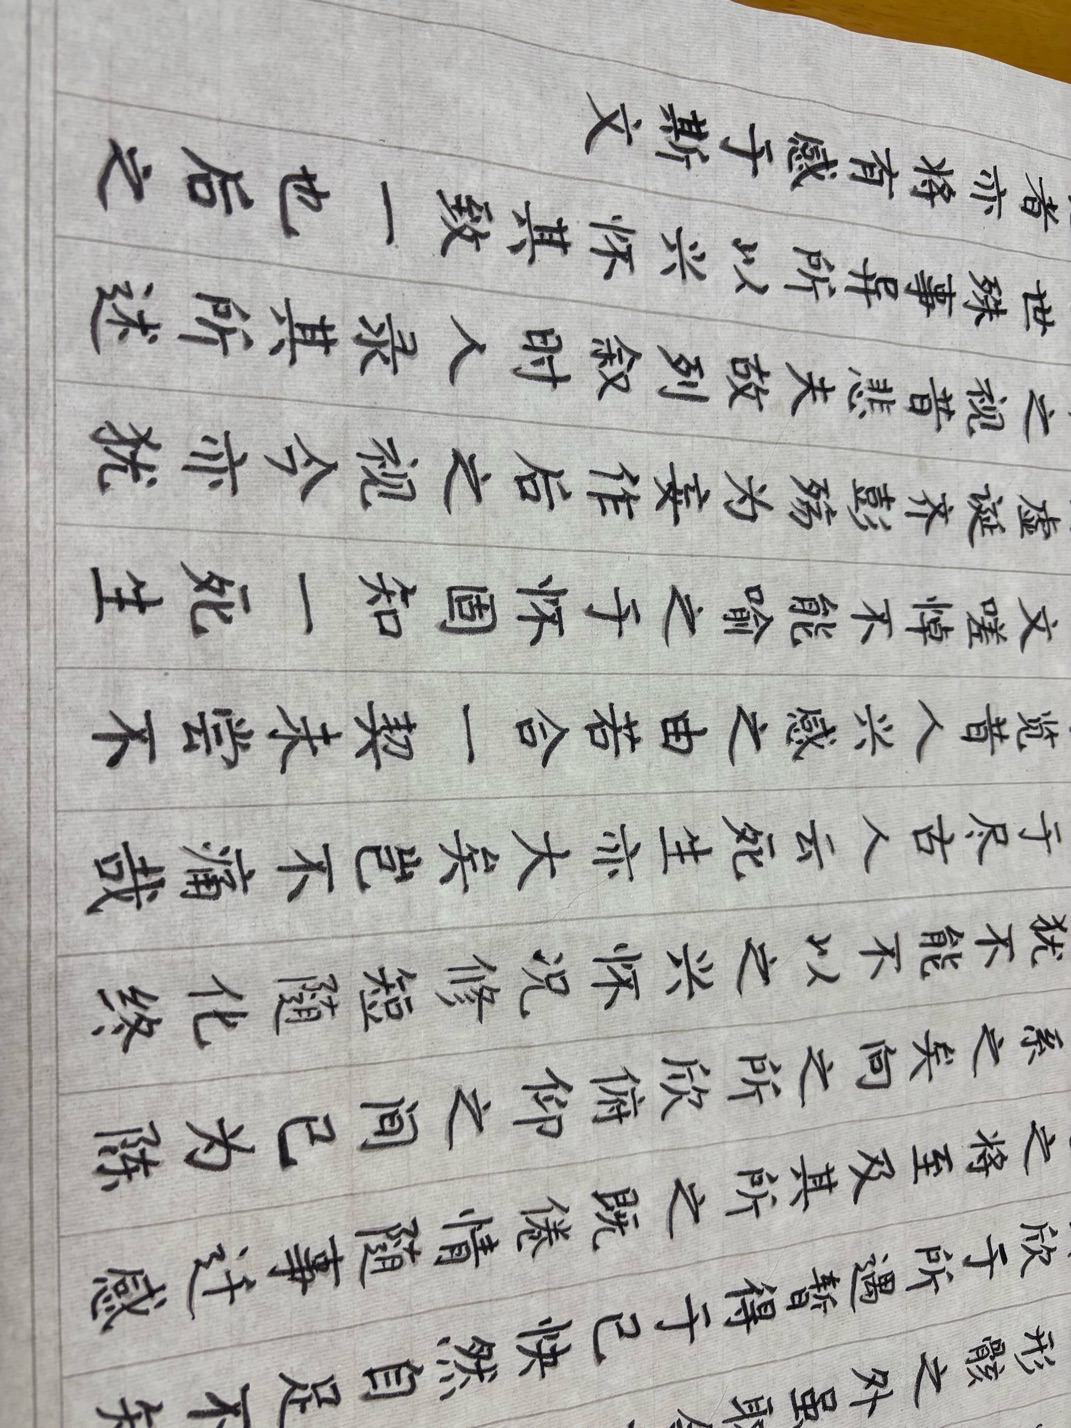 形骸之外虽取
欣于所遇暂得于己快然自足不知
之将至及其所之既倦情随事迁感
系之矣向之所欣俯仰之间已为陈
犹不能不以之兴怀况修短随化终
于尽古人云死生亦大矣岂不痛哉
览昔人兴感之由若合一契未尝不
文嗟悼不能喻之于怀固知一死生
虚诞齐彭殇为妄作后之视今亦犹
之视昔悲夫故列叙时人录其所述
世殊事异所以兴怀其致一也后之
者亦将有感于斯文